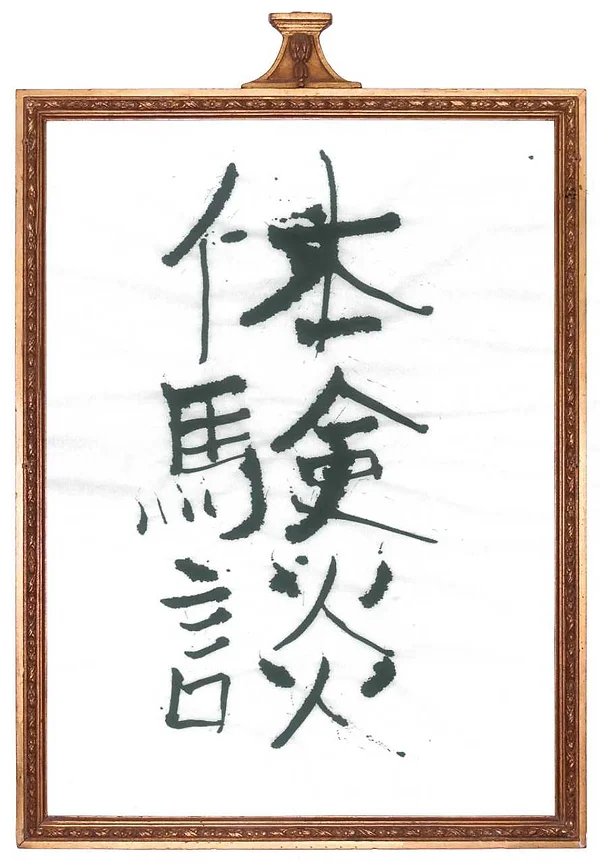 体験談